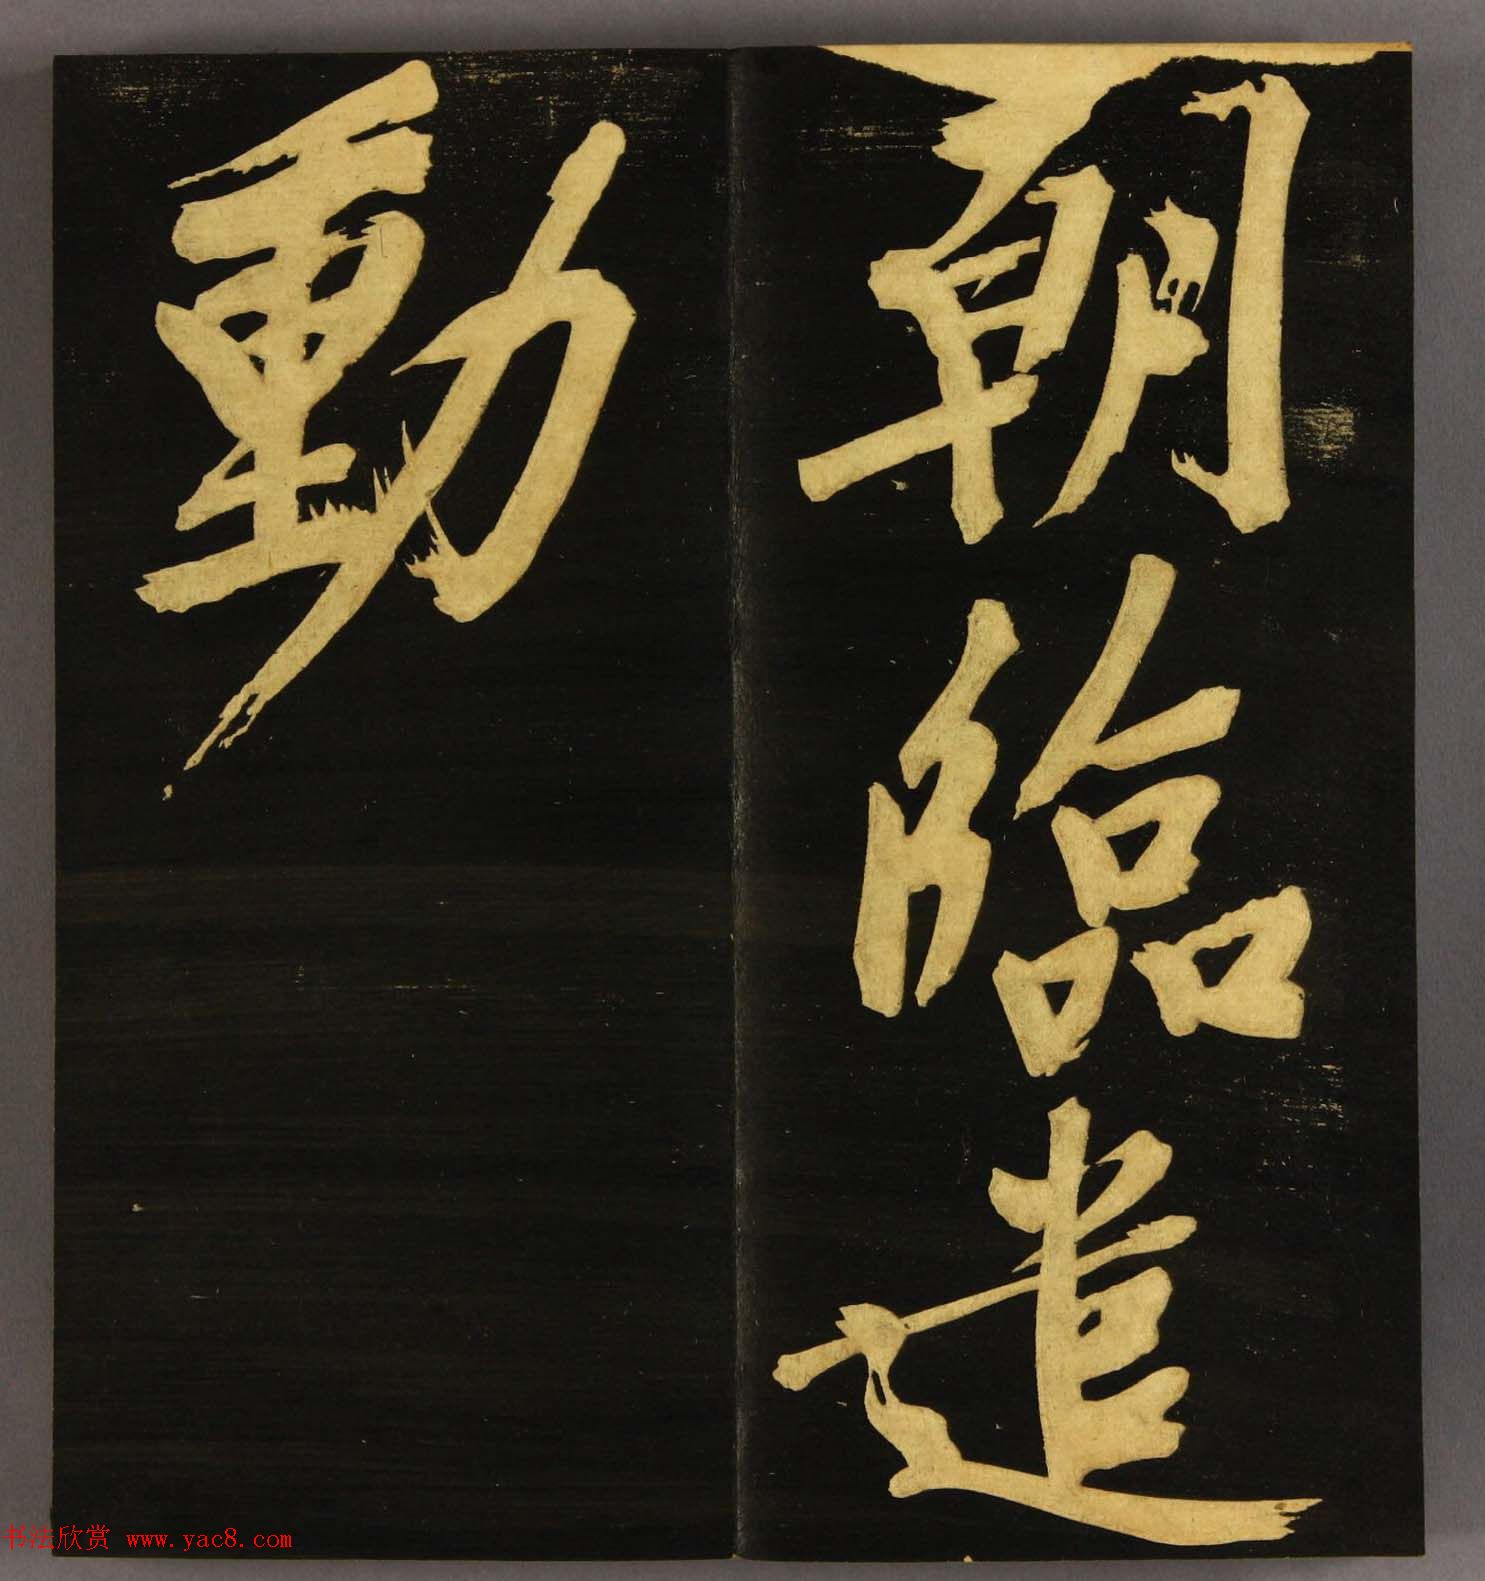 朝臨遣
動
书法欣赏 www.yac8.com